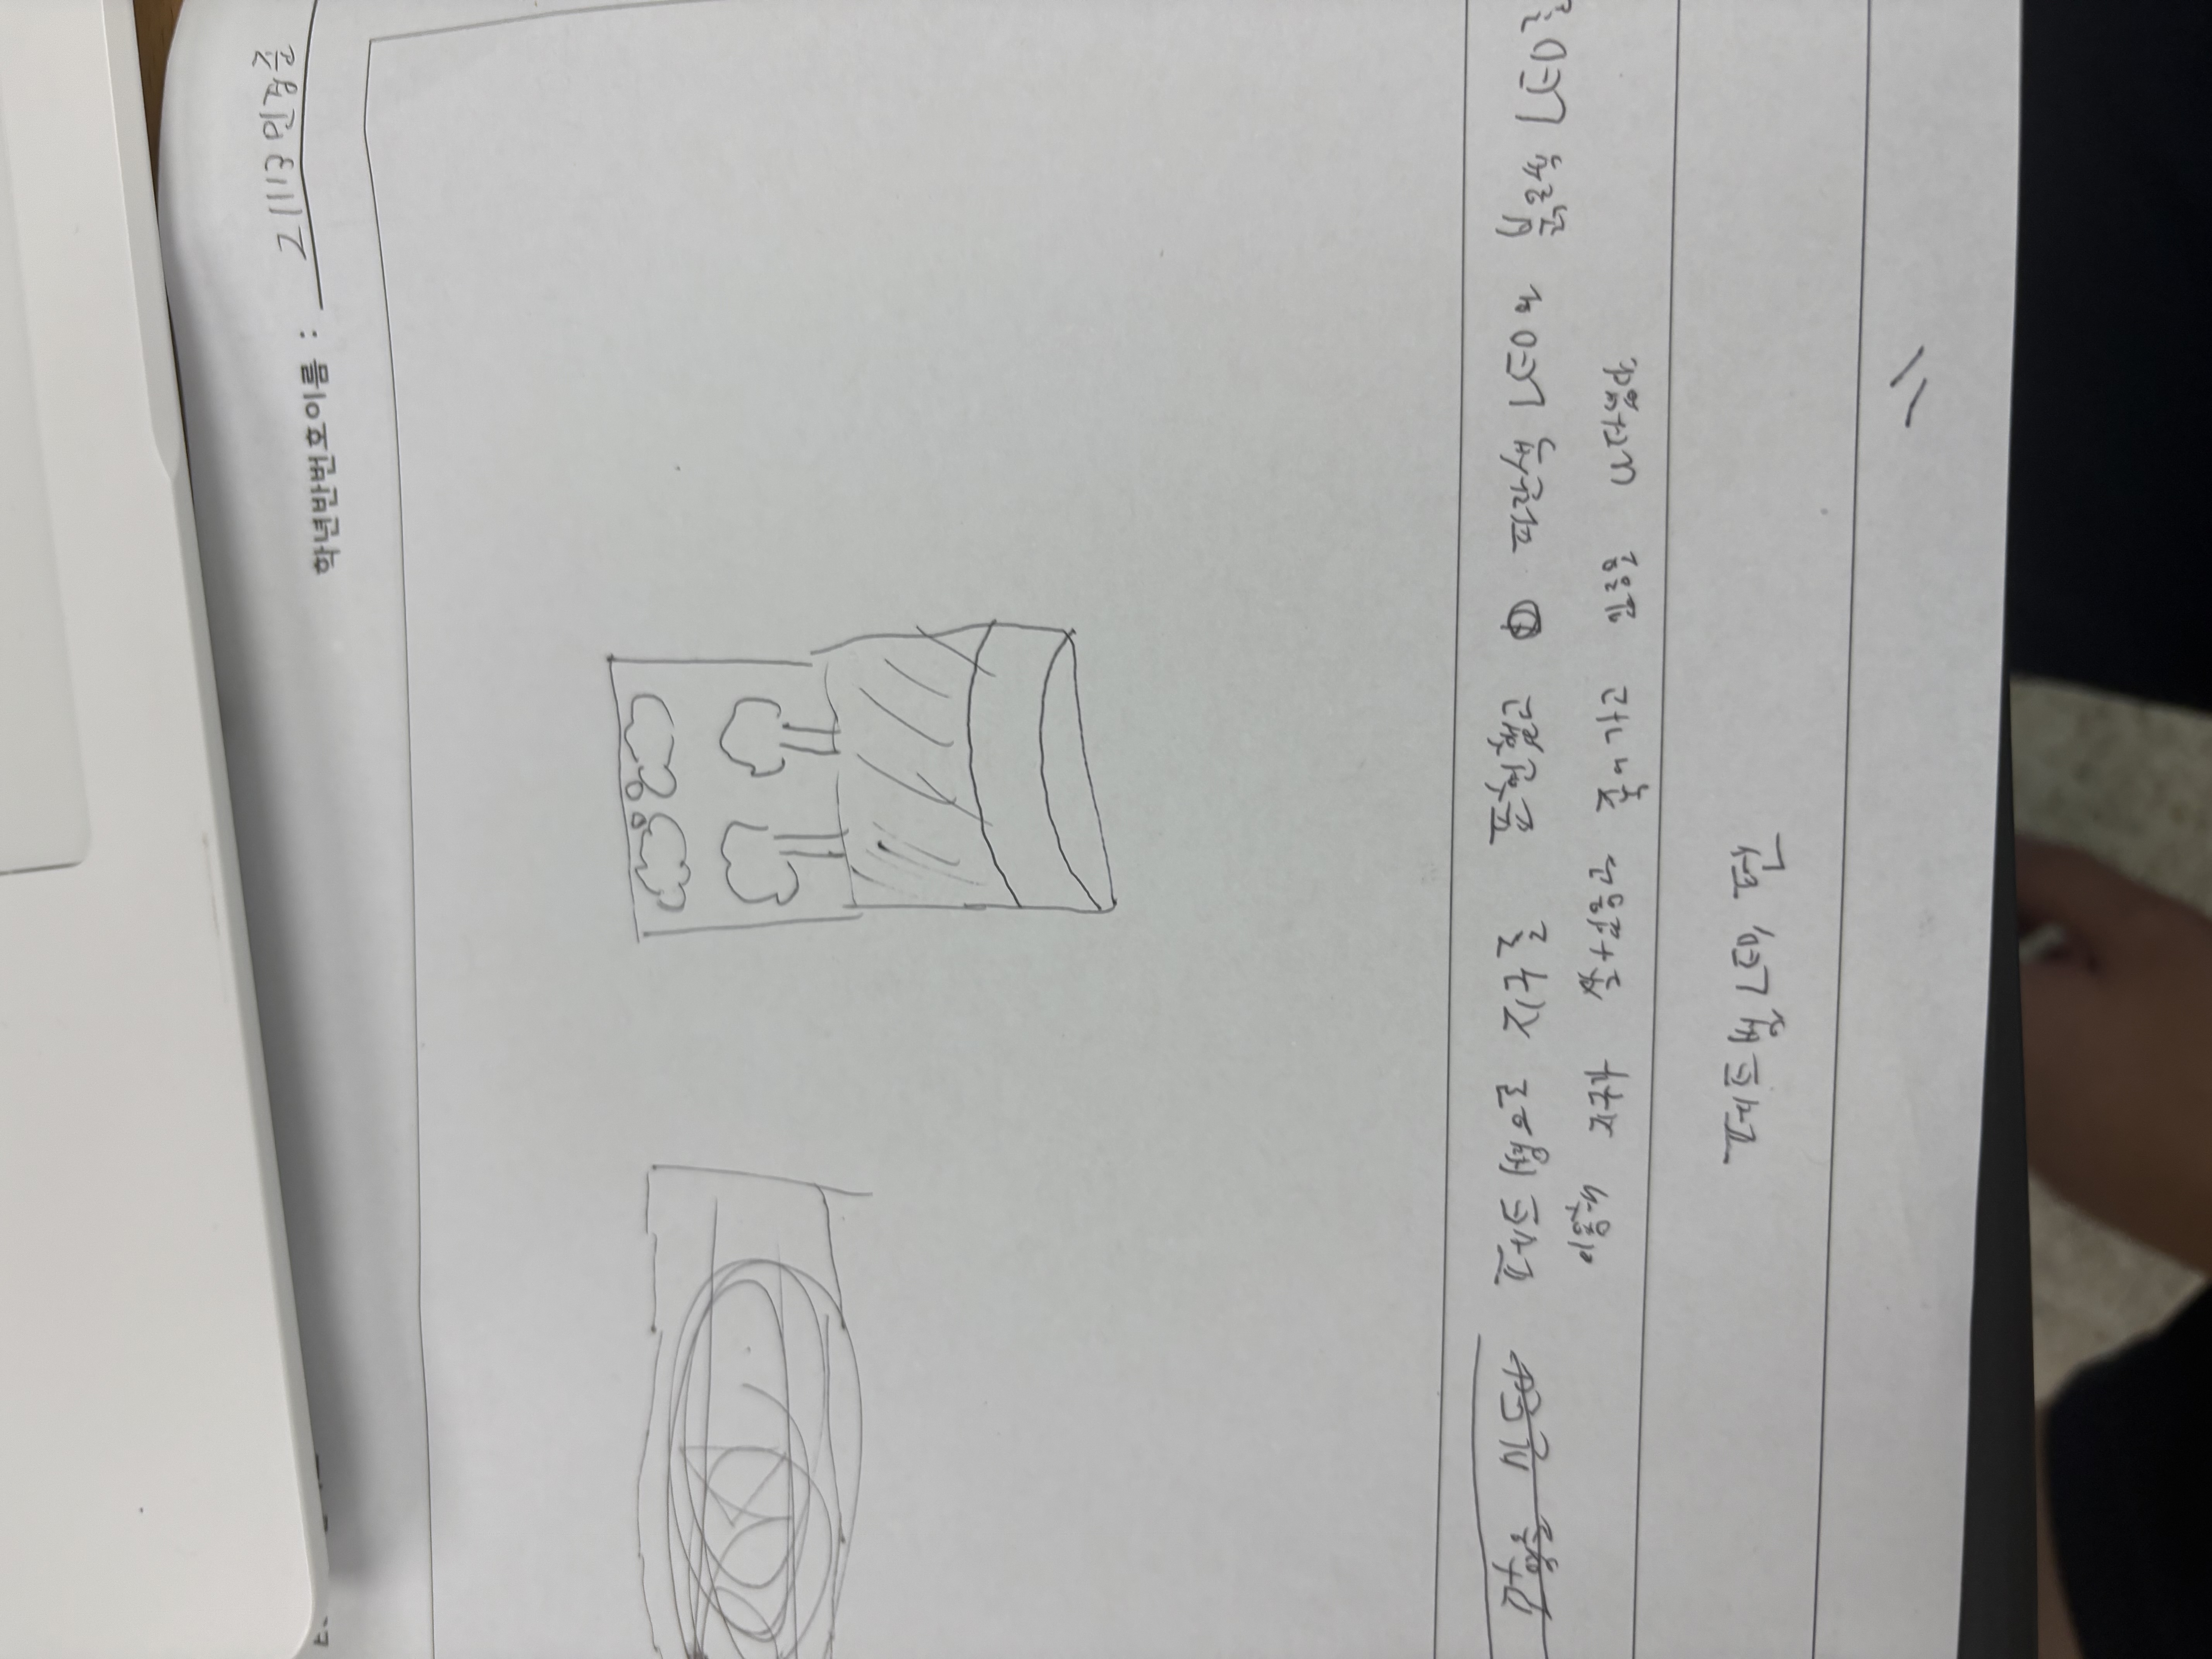 학년반번호이름 : 21113 민정준
페트병으로 지구를 표현했고 파란색 LED와 붉은색 LED를
이용해 지구가 살아있음과 죽어가고 있음을 나타냈다.
페트병 LED, 펜